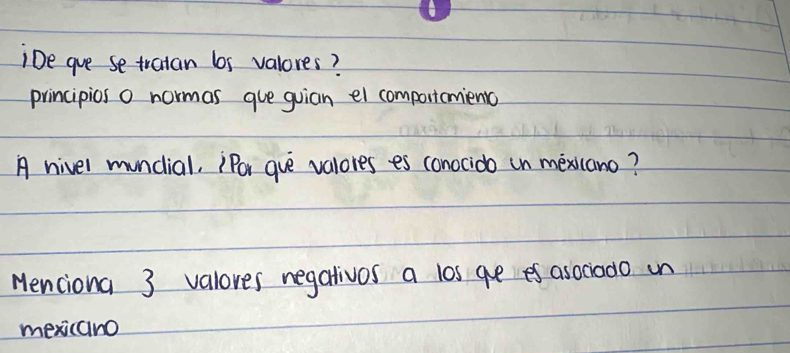 ¿De que se tratan los valores?
principios o normas que guian el comportamiento
A nivel mundial. ¿Por qué valores es conocido un méxicano?
Menciona 3 valores negativos a los que es asociado un
mexicano